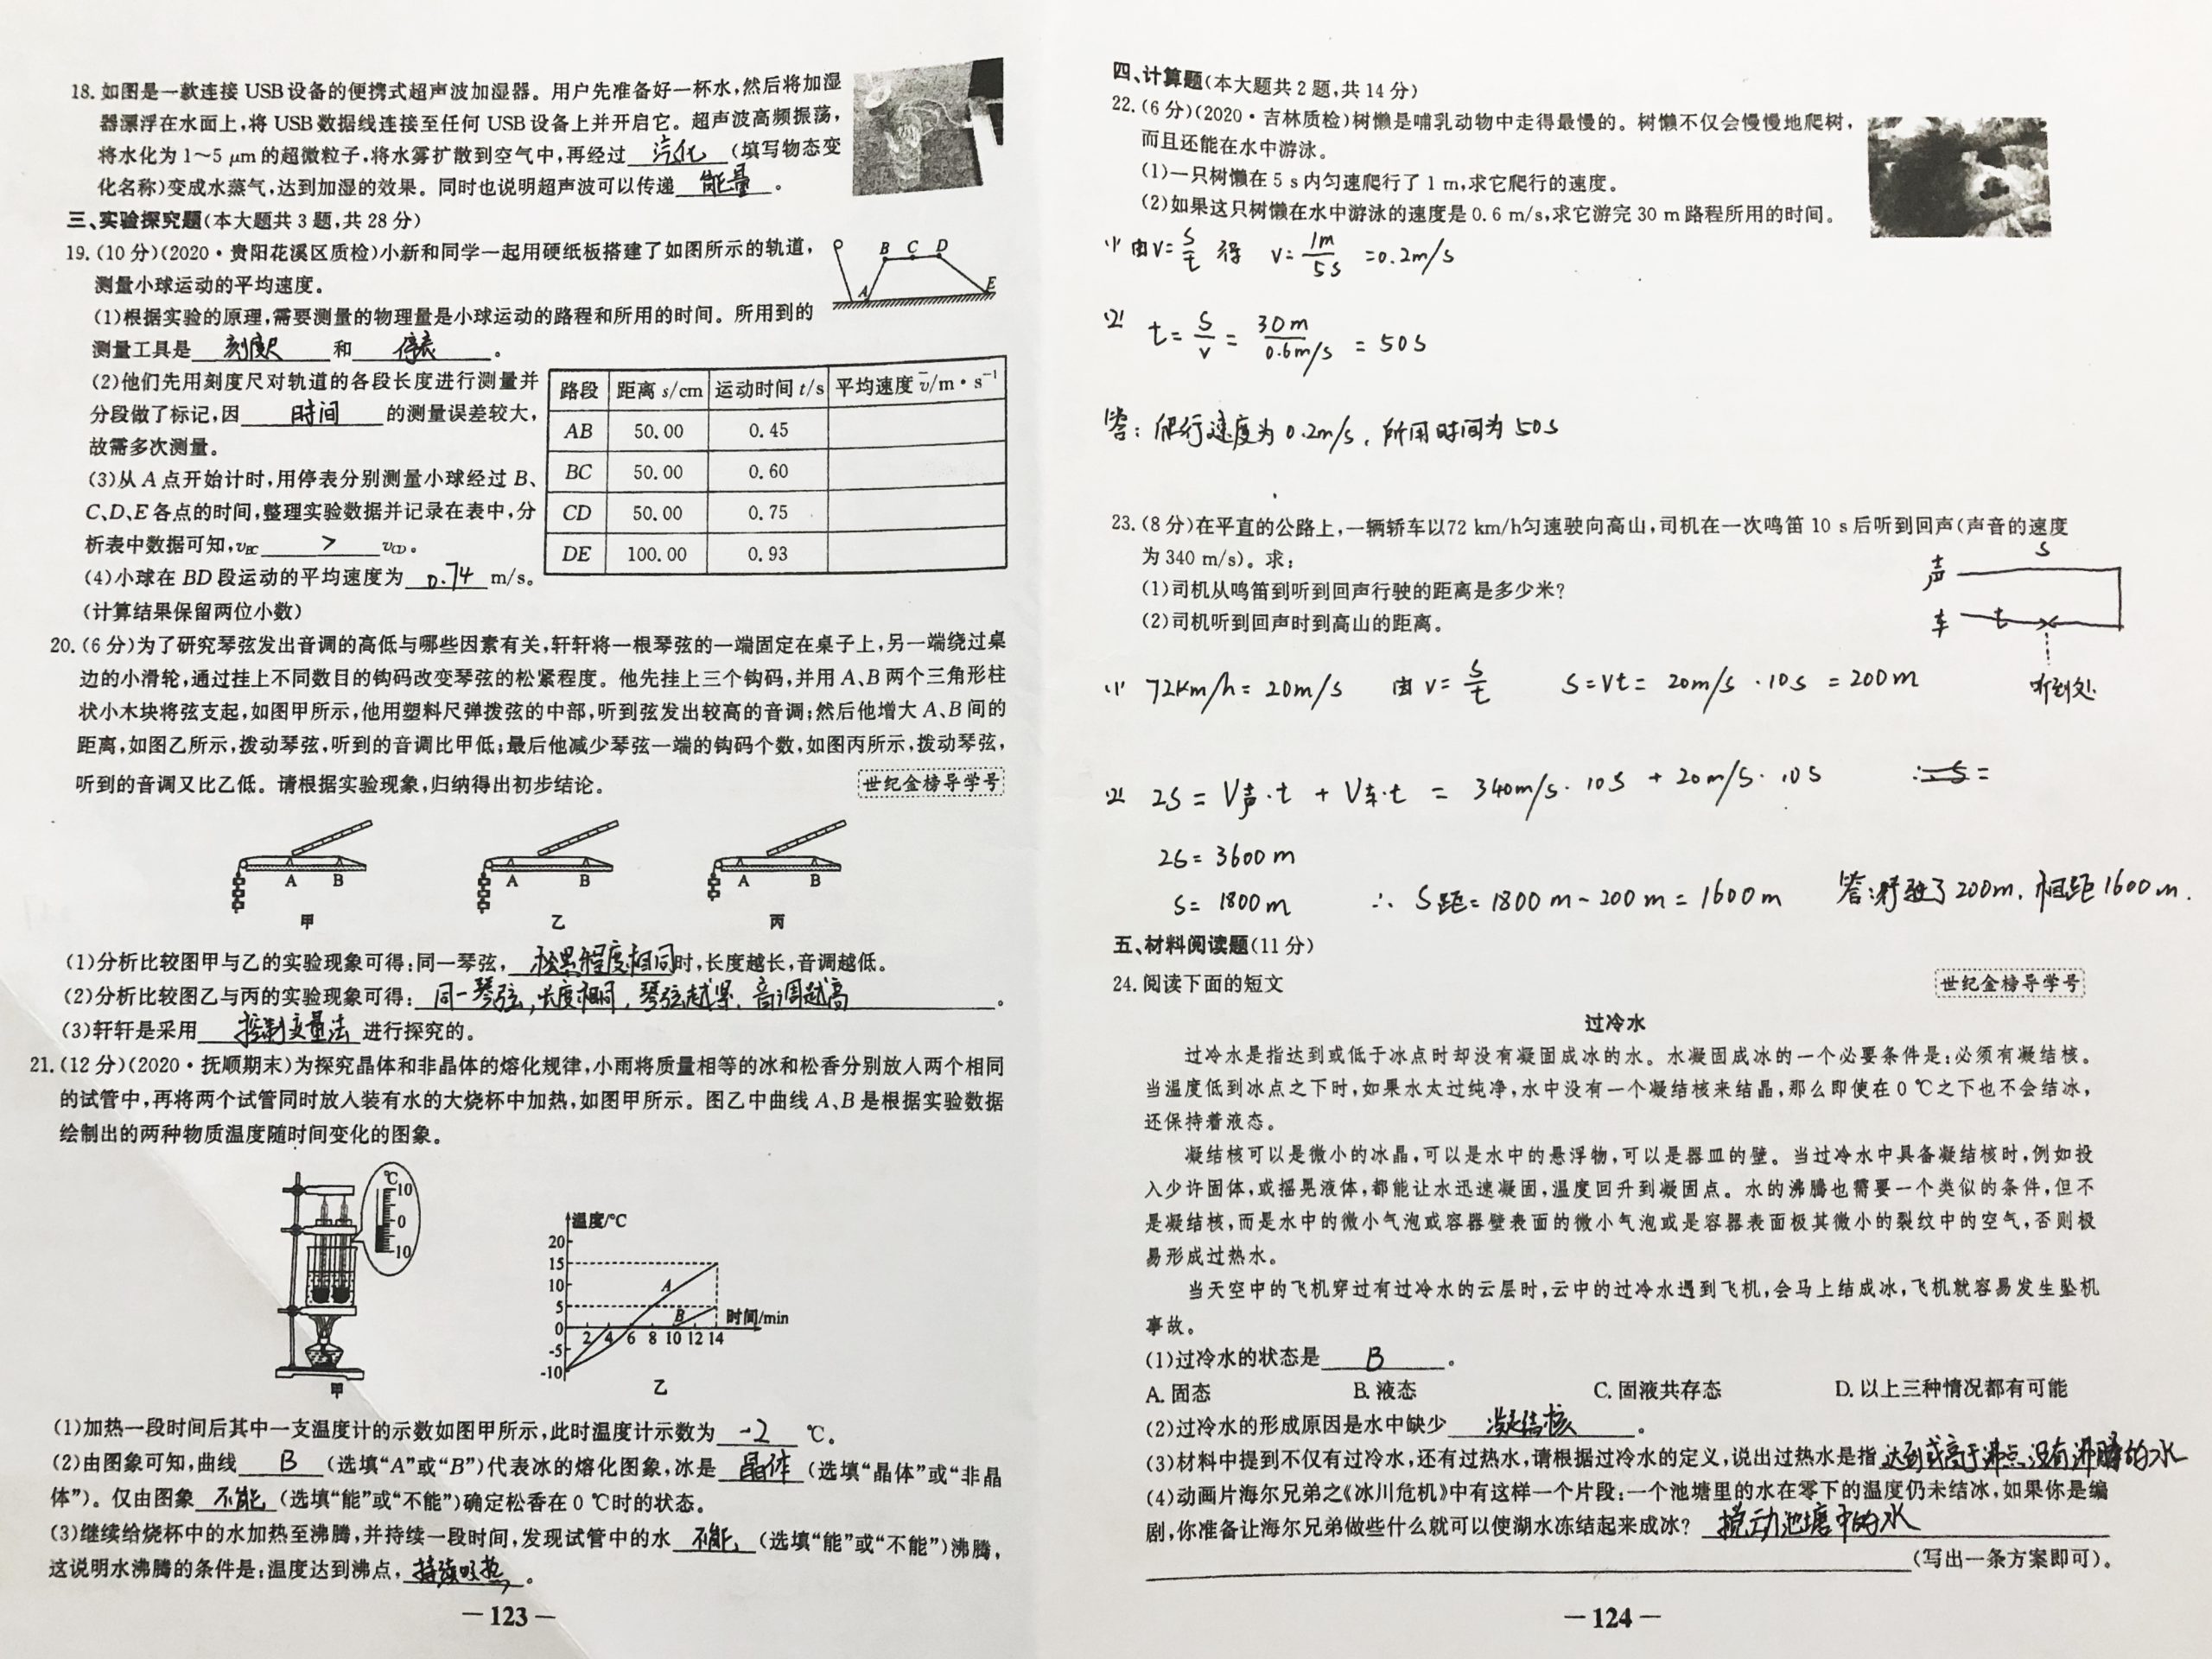 18. 如图是一款连接 USB 设备的便携式超声波加湿器。用户先准备好一杯水,然后将加湿
器漂浮在水面上,将 USB 数据线连接至任何 USB 设备上并开启它。超声波高频振荡,
将水化为 1~5 μm 的超微粒子,将水雾扩散到空气中,再经过 汽化 (填写物态变
化名称)变成水蒸气,达到加湿的效果。同时也说明超声波可以传递 能量 。
三、实验探究题(本大题共 3 题,共 28 分)
19. (10 分)(2020·贵阳花溪区质检)小新和同学一起用硬纸板搭建了如图所示的轨道,
测量小球运动的平均速度。
B C D
A E
(1)根据实验的原理,需要测量的物理量是小球运动的路程和所用的时间。所用到的
测量工具是 刻度尺 和 停表 。
(2)他们先用刻度尺对轨道的各段长度进行测量并
分段做了标记,因 时间 的测量误差较大,
故需多次测量。
(3)从 A 点开始计时,用停表分别测量小球经过 B、
C、D、E 各点的时间,整理实验数据并记录在表中,分
析表中数据可知,v_BC > v_CD。
(4)小球在 BD 段运动的平均速度为 0.74 m/s。
(计算结果保留两位小数)
路段 距离 s/cm 运动时间 t/s 平均速度 v̄/m·s⁻¹
AB 50.00 0.45
BC 50.00 0.60
CD 50.00 0.75
DE 100.00 0.93
20. (6 分)为了研究琴弦发出音调的高低与哪些因素有关,轩轩将一根琴弦的一端固定在桌子上,另一端绕过桌
边的小滑轮,通过挂上不同数目的钩码改变琴弦的松紧程度。他先挂上三个钩码,并用 A、B 两个三角形柱
状小木块将弦支起,如图甲所示,他用塑料尺弹拨弦的中部,听到弦发出较高的音调;然后他增大 A、B 间的
距离,如图乙所示,拨动琴弦,听到的音调比甲低;最后他减少琴弦一端的钩码个数,如图丙所示,拨动琴弦,
听到的音调又比乙低。请根据实验现象,归纳得出初步结论。
世纪金榜导学号
A B A B A B
甲 乙 丙
(1)分析比较图甲与乙的实验现象可得:同一琴弦, 松紧程度相同时,长度越长,音调越低。
(2)分析比较图乙与丙的实验现象可得: 同一琴弦,长度相同,琴弦越紧,音调越高 。
(3)轩轩是采用 控制变量法 进行探究的。
21. (12 分)(2020·抚顺期末)为探究晶体和非晶体的熔化规律,小雨将质量相等的冰和松香分别放入两个相同
的试管中,再将两个试管同时放入装有水的大烧杯中加热,如图甲所示。图乙中曲线 A、B 是根据实验数据
绘制出的两种物质温度随时间变化的图象。
℃
10
0
10
甲
温度/℃
20
15
10
5
0
-5
-10
A
B
2 4 6 8 10 12 14
时间/min
乙
(1)加热一段时间后其中一支温度计的示数如图甲所示,此时温度计示数为 -2 ℃。
(2)由图象可知,曲线 B (选填“A”或“B”)代表冰的熔化图象,冰是 晶体 (选填“晶体”或“非晶
体”)。仅由图象 不能 (选填“能”或“不能”)确定松香在 0 ℃时的状态。
(3)继续给烧杯中的水加热至沸腾,并持续一段时间,发现试管中的水 不能 (选填“能”或“不能”)沸腾,
这说明水沸腾的条件是:温度达到沸点, 持续吸热 。
— 123 —
四、计算题(本大题共 2 题,共 14 分)
22. (6 分)(2020·吉林质检)树懒是哺乳动物中走得最慢的。树懒不仅会慢慢地爬树,
而且还能在水中游泳。
(1)一只树懒在 5 s 内匀速爬行了 1 m,求它爬行的速度。
(2)如果这只树懒在水中游泳的速度是 0.6 m/s,求它游完 30 m 路程所用的时间。
(1) 由 v=s/t 得 v=1m/5s =0.2m/s
(2) t=s/v=30m/0.6m/s =50s
答:爬行速度为 0.2m/s,所用时间为 50s
23. (8 分)在平直的公路上,一辆轿车以72 km/h匀速驶向高山,司机在一次鸣笛 10 s 后听到回声(声音的速度
为 340 m/s)。求:
(1)司机从鸣笛到听到回声行驶的距离是多少米?
(2)司机听到回声时到高山的距离。
声 s
车 t
听到处
(1) 72km/h=20m/s 由 v=s/t s=vt=20m/s·10s=200m
(2) 2s=V声·t+V车·t=340m/s·10s+20m/s·10s
2s=3600m
s=1800m ∴ S距=1800m-200m=1600m 答:行驶了200m,相距1600m.
五、材料阅读题(11 分)
24. 阅读下面的短文
世纪金榜导学号
过冷水
过冷水是指达到或低于冰点时却没有凝固成冰的水。水凝固成冰的一个必要条件是:必须有凝结核。
当温度低到冰点之下时,如果水太过纯净,水中没有一个凝结核来结晶,那么即使在 0 ℃之下也不会结冰,
还保持着液态。
凝结核可以是微小的冰晶,可以是水中的悬浮物,可以是器皿的壁。当过冷水中具备凝结核时,例如投
入少许固体,或摇晃液体,都能让水迅速凝固,温度回升到凝固点。水的沸腾也需要一个类似的条件,但不
是凝结核,而是水中的微小气泡或容器壁表面的微小气泡或是容器表面极其微小的裂纹中的空气,否则极
易形成过热水。
当天空中的飞机穿过有过冷水的云层时,云中的过冷水遇到飞机,会马上结成冰,飞机就容易发生坠机
事故。
(1)过冷水的状态是 B 。
A. 固态 B. 液态 C. 固液共存态 D. 以上三种情况都有可能
(2)过冷水的形成原因是水中缺少 凝结核 。
(3)材料中提到不仅有过冷水,还有过热水,请根据过冷水的定义,说出过热水是指 达到或高于沸点没有沸腾的水
(4)动画片海尔兄弟之《冰川危机》中有这样一个片段:一个池塘里的水在零下的温度仍未结冰,如果你是编
剧,你准备让海尔兄弟做些什么就可以使湖水冻结起来成冰? 搅动池塘中的水
(写出一条方案即可)。
— 124 —